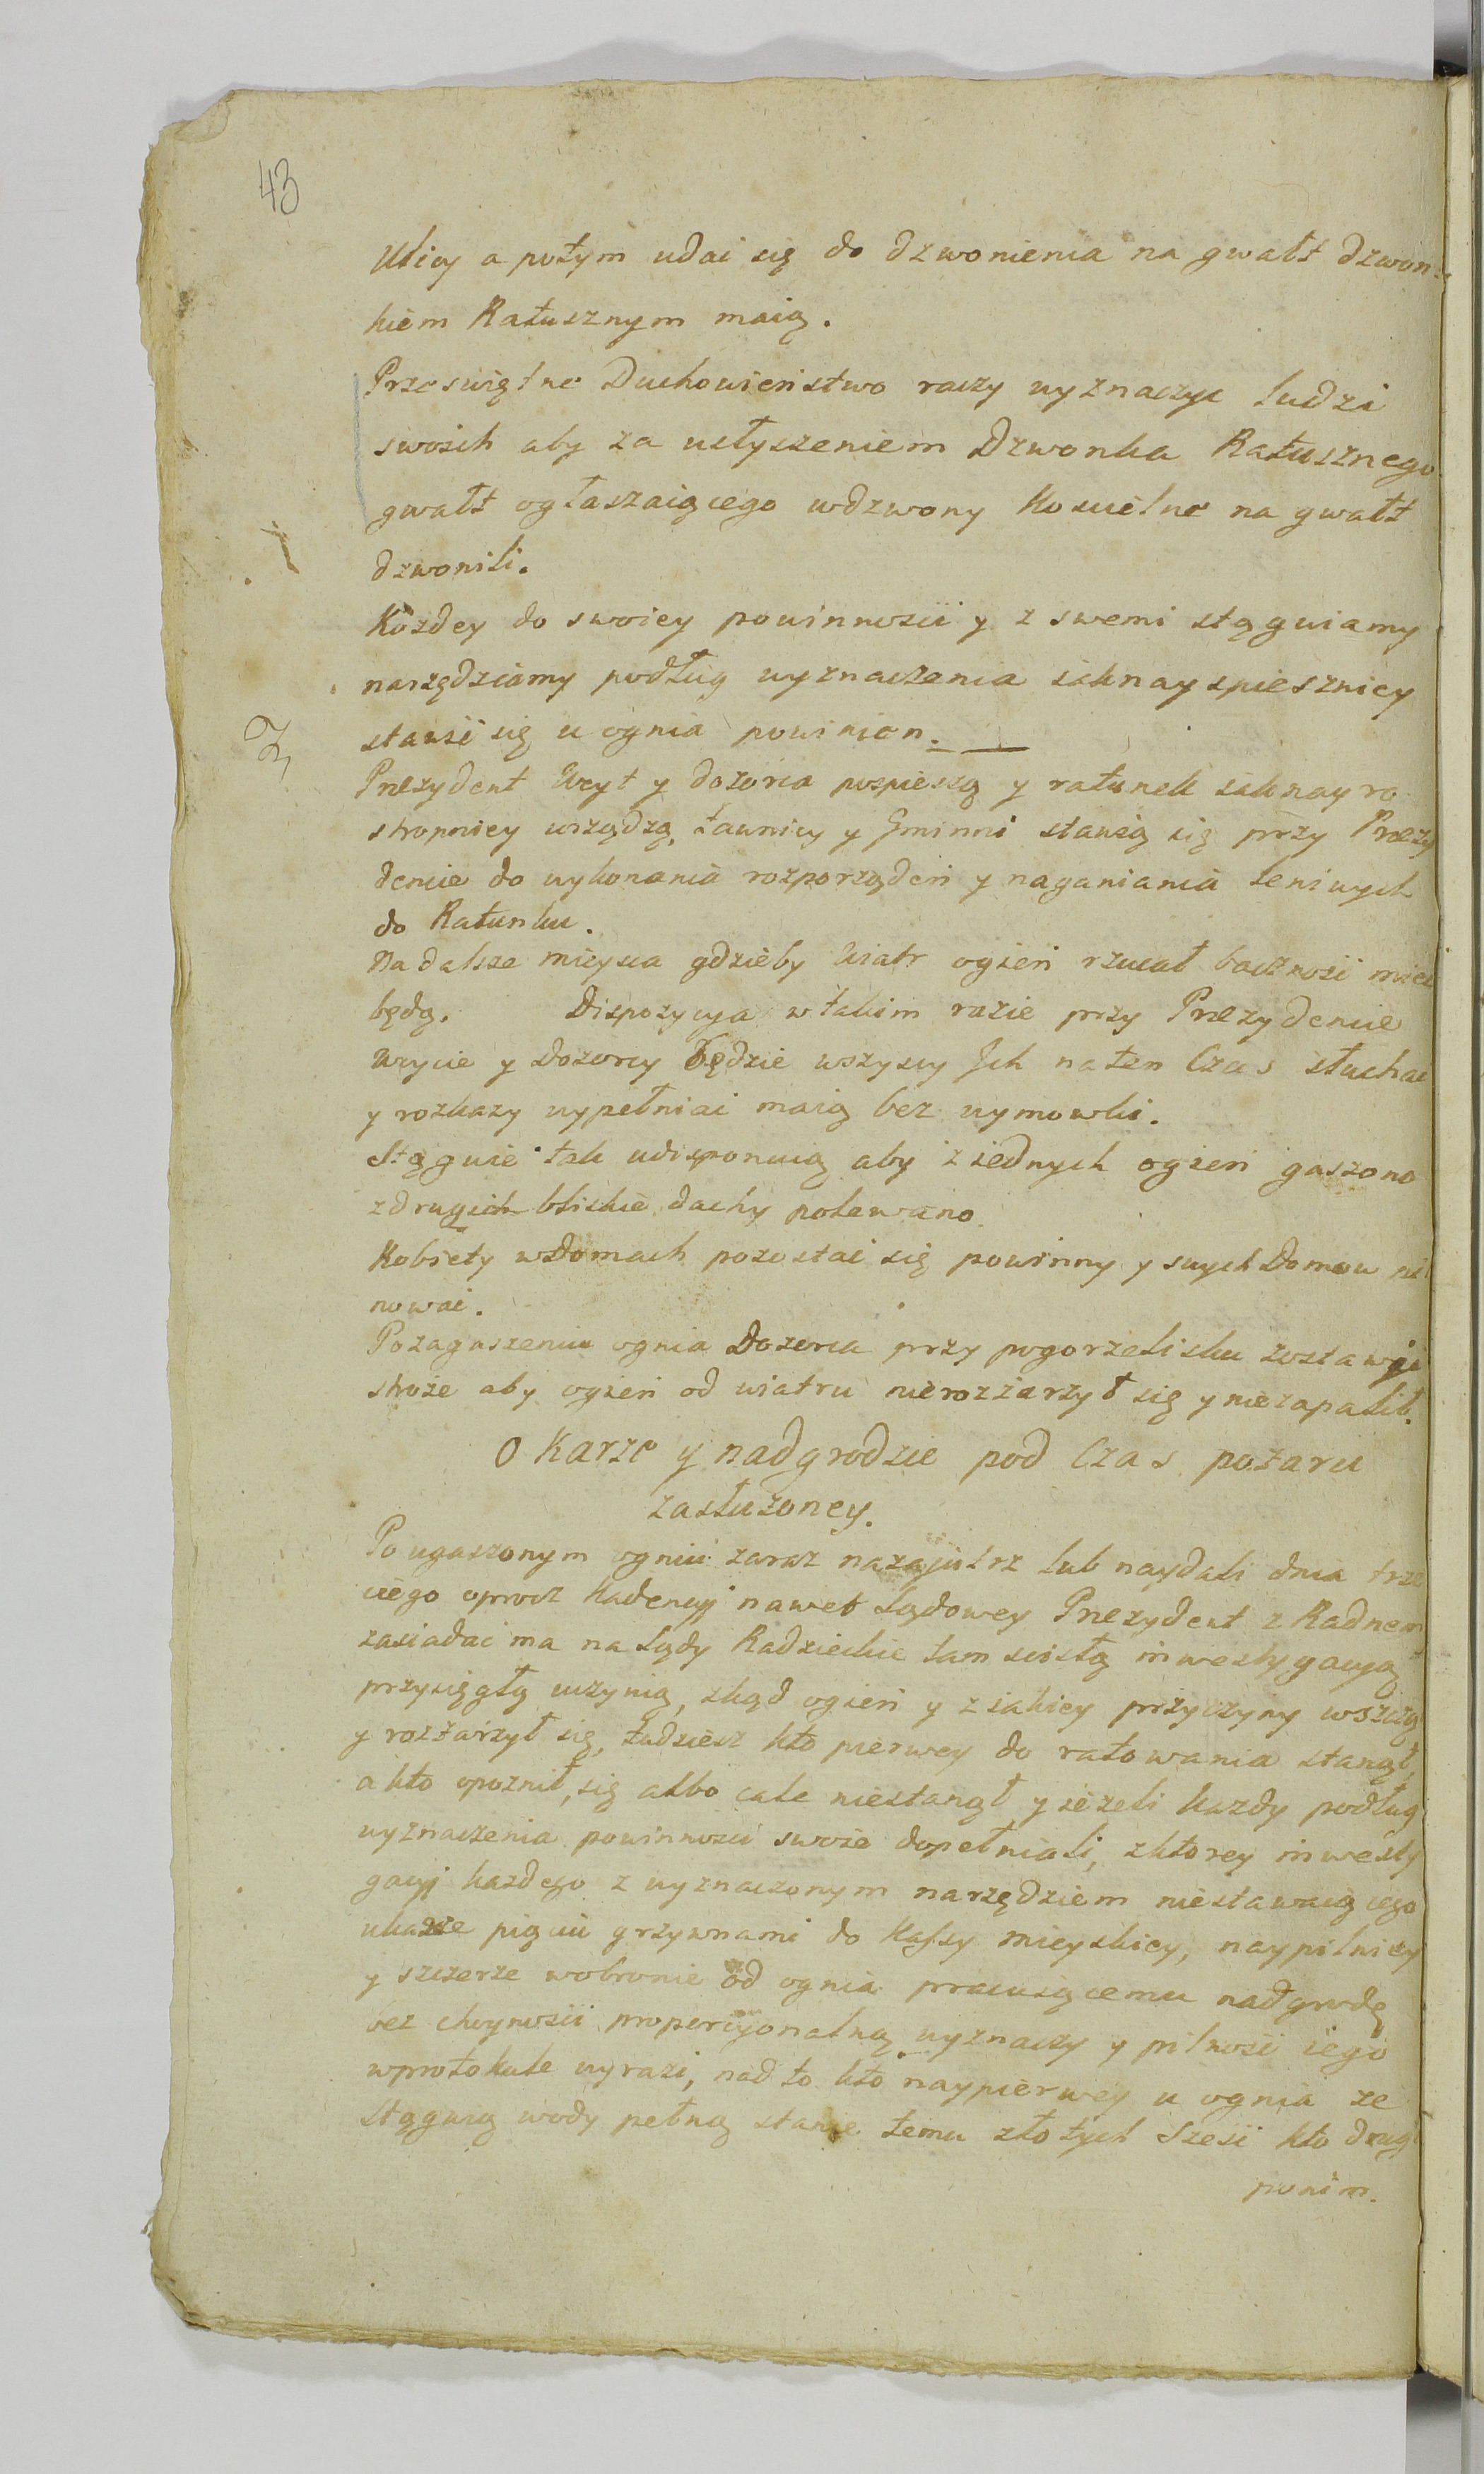 43
Ulicy a potym udać się do dzwonienia na gwałt dzwon-
kiem Ratusznym maią.
Przeświętne Duchowieństwo raczy wyznaczyć ludzi
swoich aby za usłyszeniem Dzwonka Ratusznego
gwałt ogłaszaiącego w dzwony Kościelne na gwałt
dzwonili.
Kożdey do swoiey powinności y z swemi stągwiamy
narzędziamy podług wyznaczenia iaknayspieszniey
stawić się u ognia powinien.
Prezydent Woyt y dozorca pospieszą y ratunek iaknayro
stropniey urządzą, Ławnicy y Gminni stawią się przy Prezy
dencie do wykonania rozporządzeń y naganiania leniwych
do Ratunku.
Na dalsze mieysca gdzieby Wiatr ogień rzucał baczność mieć
będą. Dispozycya w takim razie przy Prezydencie
Woycie y Dozorcy Będzie wszyscy Ich na ten Czas słuchać
y rozkazy wypełniać maią bez wymowki.
Stągwie tak udisponuią aby z iednych ogień gaszono
z drugich bliskie dachy polewano
Kobiety w Domach pozostać się powinny y swych Domow pil
nować.
Po zagaszeniu ognia Dozorca przy pogorzelisku zostawi
stroże aby ogień od wiatru nierozżarzył się y niezapalił.
O Karze y nadgrodzie pod Czas pożaru
zasłużoney.
Po ugaszonym ogniu zaraz nazajutrz lub naydali dnia trze
ciego oprocz Kadencyi nawet Sądowey Prezydent z Radnem
zasiadać ma na Sądy Radzieckie tam scisłą inwestygacyą
przysięgłą uczynią, zkąd ogień y z iakiey przyczyny wszczął
y rozżarzył się, tudziesz kto pierwey do ratowania stanął,
a kto opoznił się albo cale niestanął y ieżeli kazdy podług
wyznaczenia powinności swoie dopełniali, z ktorey inwesty
gacyi kazdego z wyznaczonym narzędziem niestawaiącego
ukarze pięciu grzywnami do Kassy mieyskiey, naypilniey
y szczerze w obronie od ognia pracuiącemu nadgrodę
bez chciwości proporcyonalną wyznaczy y pilność iego
w protokule wyrazi, nad to kto naypierwey u ognia ze
stągwią wody pełną stanie temu złotych Sześć kto drugi
po nim.